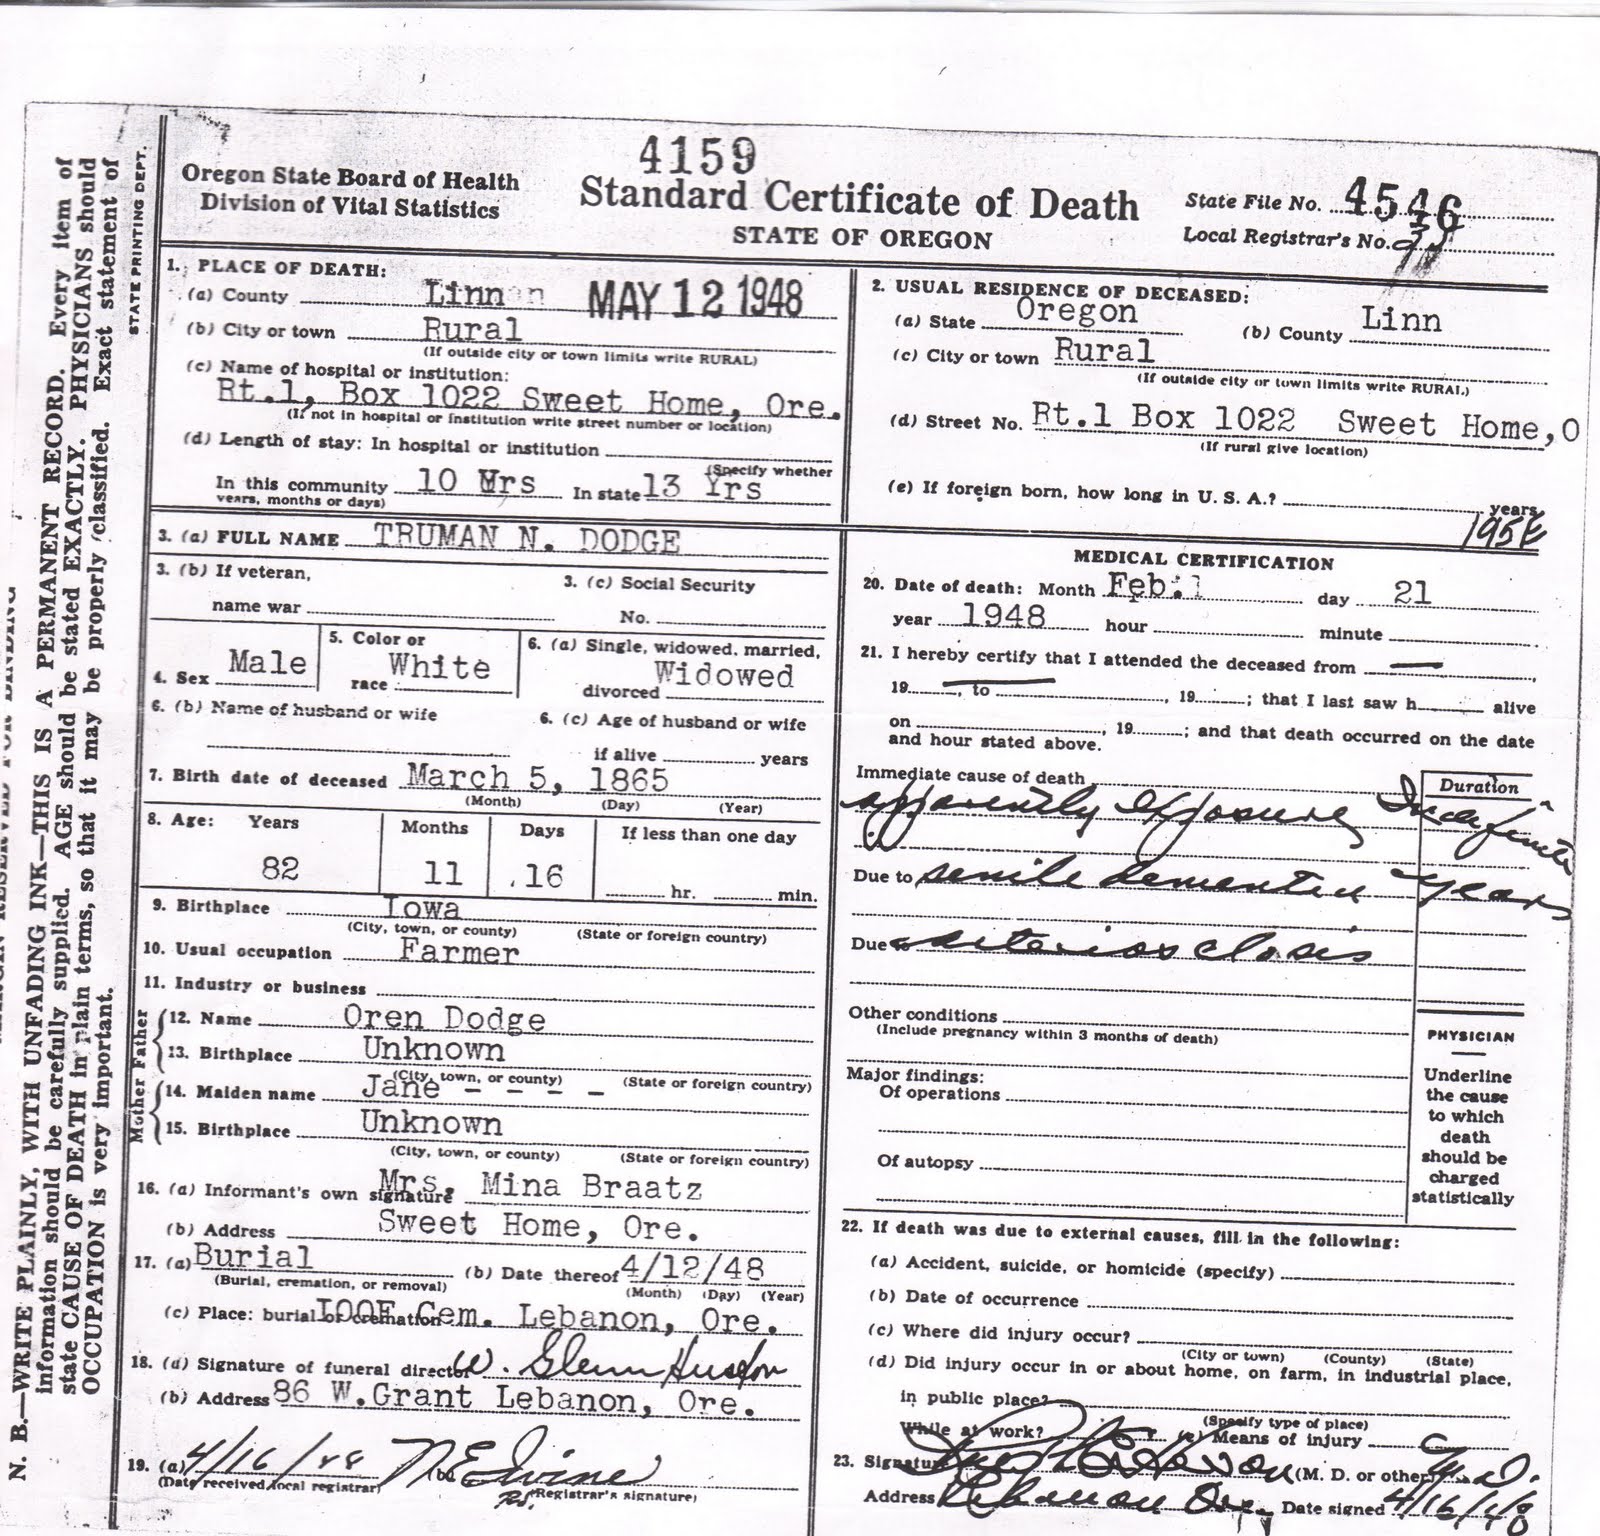 4159
Oregon State Board of Health
Division of Vital Statistics
Standard Certificate of Death
STATE OF OREGON
State File No. 4546
Local Registrar's No.
N. B.—WRITE PLAINLY, WITH UNFADING INK—THIS IS A PERMANENT RECORD. Every item of
information should be carefully supplied. AGE should be stated EXACTLY. PHYSICIANS should
state CAUSE OF DEATH in plain terms, so that it may be properly classified. Exact statement of
OCCUPATION is very important.
STATE PRINTING DEPT.
1. PLACE OF DEATH:
(a) County Linn
MAY 12 1948
(b) City or town Rural
(If outside city or town limits write RURAL)
(c) Name of hospital or institution:
Rt.1, Box 1022 Sweet Home, Ore.
(If not in hospital or institution write street number or location)
(d) Length of stay: In hospital or institution
(Specify whether
In this community 10 Yrs In state 13 Yrs
years, months or days)
2. USUAL RESIDENCE OF DECEASED:
(a) State Oregon (b) County Linn
(c) City or town Rural
(If outside city or town limits write RURAL)
(d) Street No. Rt.1 Box 1022 Sweet Home, O
(If rural give location)
(e) If foreign born, how long in U. S. A.? years
3. (a) FULL NAME TRUMAN N. DODGE
3. (b) If veteran,
name war
3. (c) Social Security
No.
4. Sex Male
5. Color or
race White
6. (a) Single, widowed, married,
divorced Widowed
6. (b) Name of husband or wife
6. (c) Age of husband or wife
if alive years
7. Birth date of deceased March 5, 1865
(Month) (Day) (Year)
8. Age: Years Months Days If less than one day
82 11 16 hr. min.
9. Birthplace Iowa
(City, town, or county) (State or foreign country)
10. Usual occupation Farmer
11. Industry or business
Father
12. Name Oren Dodge
13. Birthplace Unknown
(City, town, or county) (State or foreign country)
Mother
14. Maiden name Jane - - - -
15. Birthplace Unknown
(City, town, or county) (State or foreign country)
16. (a) Informant's own signature Mrs. Mina Braatz
(b) Address Sweet Home, Ore.
17. (a) Burial (b) Date thereof 4/12/48
(Burial, cremation, or removal) (Month) (Day) (Year)
(c) Place: burial or cremation IOOF Cem. Lebanon, Ore.
18. (a) Signature of funeral director W. Glenn Huston
(b) Address 86 W.Grant Lebanon, Ore.
19. (a) 4/16/48 (b) N E Irvine
(Date received local registrar) (Registrar's signature)
MEDICAL CERTIFICATION
20. Date of death: Month Feb. day 21
year 1948 hour minute
21. I hereby certify that I attended the deceased from
19, to , 19; that I last saw h alive
on , 19; and that death occurred on the date
and hour stated above.
Immediate cause of death Duration
apparently exposure Indefinite
Due to senile dementia years
Due to arteriosclosis
Other conditions
(Include pregnancy within 3 months of death)
Major findings:
Of operations
Of autopsy
PHYSICIAN
Underline
the cause
to which
death
should be
charged
statistically
22. If death was due to external causes, fill in the following:
(a) Accident, suicide, or homicide (specify)
(b) Date of occurrence
(c) Where did injury occur?
(City or town) (County) (State)
(d) Did injury occur in or about home, on farm, in industrial place,
in public place?
(Specify type of place)
While at work? (e) Means of injury
23. Signature (M. D. or other) M.D.
Address Lebanon Ore, Date signed 4/16/48